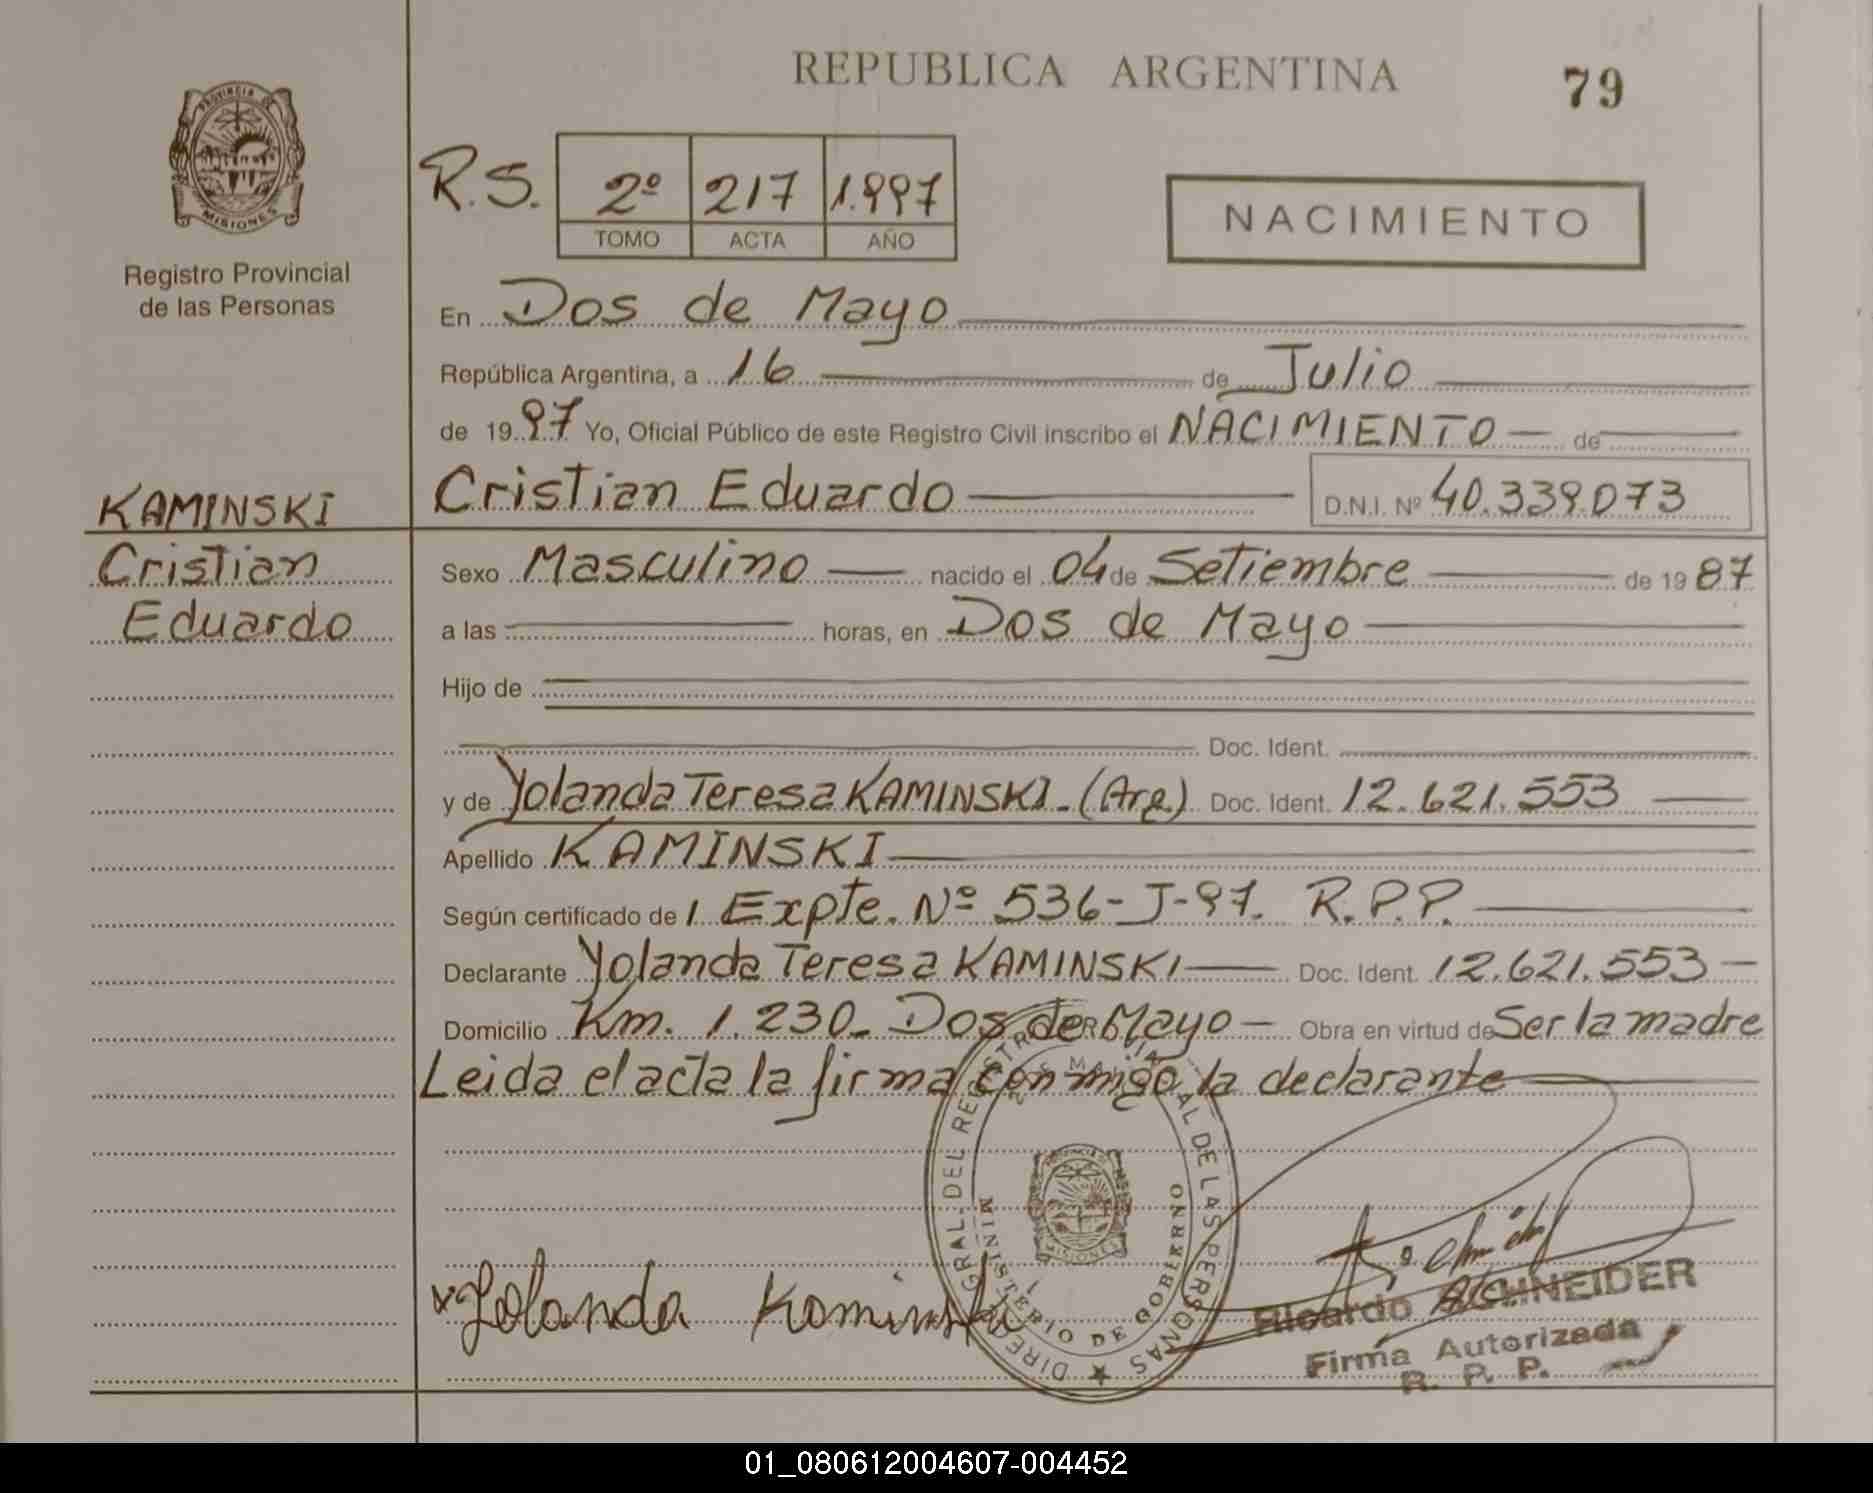 REPUBLICA ARGENTINA
79
PROVINCIA DE
MISIONES
Registro Provincial
de las Personas
R.S.
2º 217 1.997
TOMO ACTA AÑO
NACIMIENTO
En Dos de Mayo
República Argentina, a 16 de Julio
de 1997 Yo, Oficial Público de este Registro Civil inscribo el NACIMIENTO de
KAMINSKI
Cristian
Eduardo
Cristian Eduardo D.N.I. Nº 40.339.073
Sexo Masculino nacido el 04 de Setiembre de 1987
a las horas, en Dos de Mayo
Hijo de
Doc. Ident.
y de Yolanda Teresa KAMINSKI.(Arg) Doc. Ident. 12.621.553
Apellido KAMINSKI
Según certificado de 1 Expte. Nº 536-J-97. R.P.P.
Declarante Yolanda Teresa KAMINSKI Doc. Ident. 12.621.553
Domicilio Km. 1.230. Dos de Mayo Obra en virtud de Ser la madre
Leida el acta la firma conmigo la declarante
DIREC GRAL. DEL REGISTRO AL DE LAS PERSONAS
MINISTERIO DE GOBIERNO
MISIONES
Yolanda Kominski
Ricardo SCHNEIDER
Firma Autorizada
R. P. P.
01_080612004607-004452